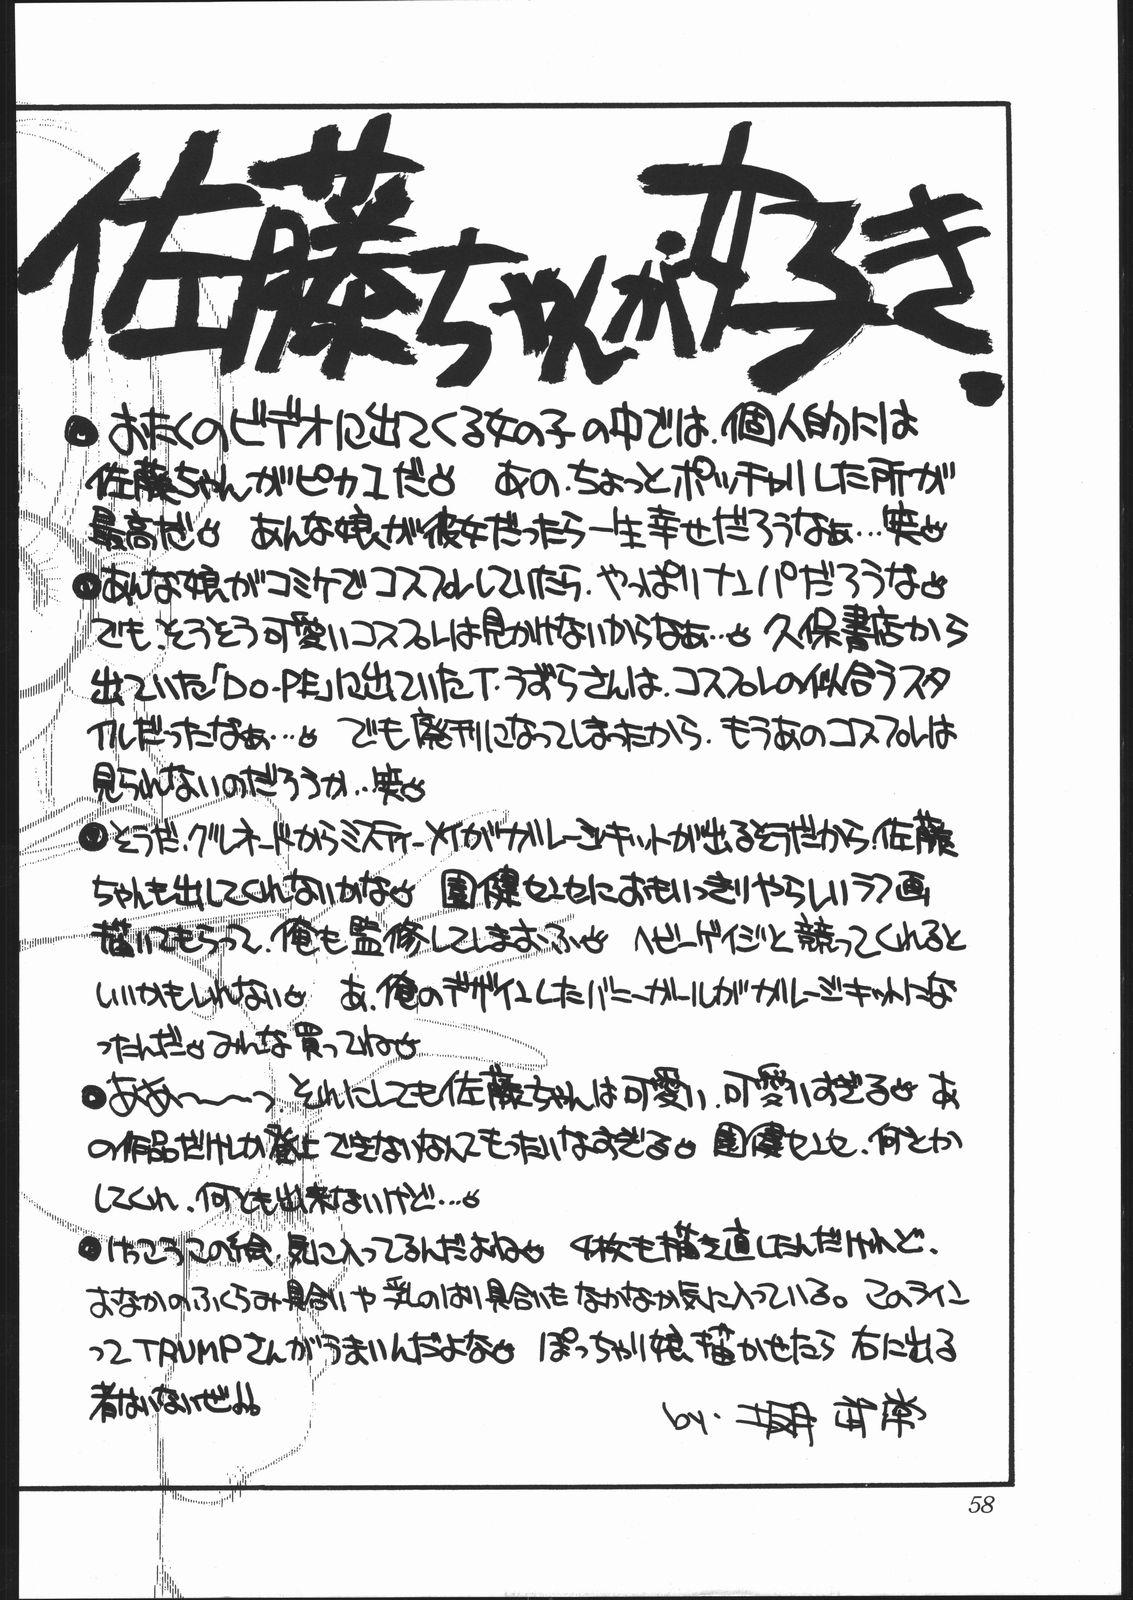 佐藤ちゃんが好き.
おたくのビデオに出てくる女の子の中では、個人的には
佐藤ちゃんがピカ1だ♡ あの、ちょっとポッチャリした所が
最高だ♡ あんな娘が彼女だったら一生幸せだろうなぁ…笑♡
あんな娘がコミケでコスプレしていたら、やっぱりナンパだろうな♡
でも、そうそう可愛いコスプレは見かけないからなぁ…♡ 久保書店から
出ていた「DO-PE」に出ていたT・うずらさんは、コスプレの似合うスタ
イルだったなぁ…♡ でも廃刊になってしまったから、もうあのコスプレは
見られないのだろうか…笑♡
そうだ、グルネードからミスティーメイがガレージキットが出るそうだから、佐藤
ちゃんも出してくれないかな♡ 園健センセにおもいっきりやらしいラフ画
描いてもらって、俺も監修してしまおふ♡ ヘビーゲイジと競ってくれると
いいかもしれない♡ あ、俺のデザインしたバニーガールがガレージキットにな
ったんだ♡みんな買ってね♡
ああ〜〜っ それにしても佐藤ちゃんは可愛い、可愛いすぎる♡ あ
の作品だけしか登上できないなんてもったいなすぎる♡ 園健センセ、何とか
してくれ、何とも出来ないけど…♡
けっこうこの絵、気に入ってるんだよね♡ 4枚も描き直したんだけれど、
おなかのふくらみ具合いや乳のはり具合いもなかなか気に入っている。このライン
ってTRUMPさんがうまいんだよな♡ ぽっちゃり娘描かせたら右に出る
者はいないぜ!!
by.
58